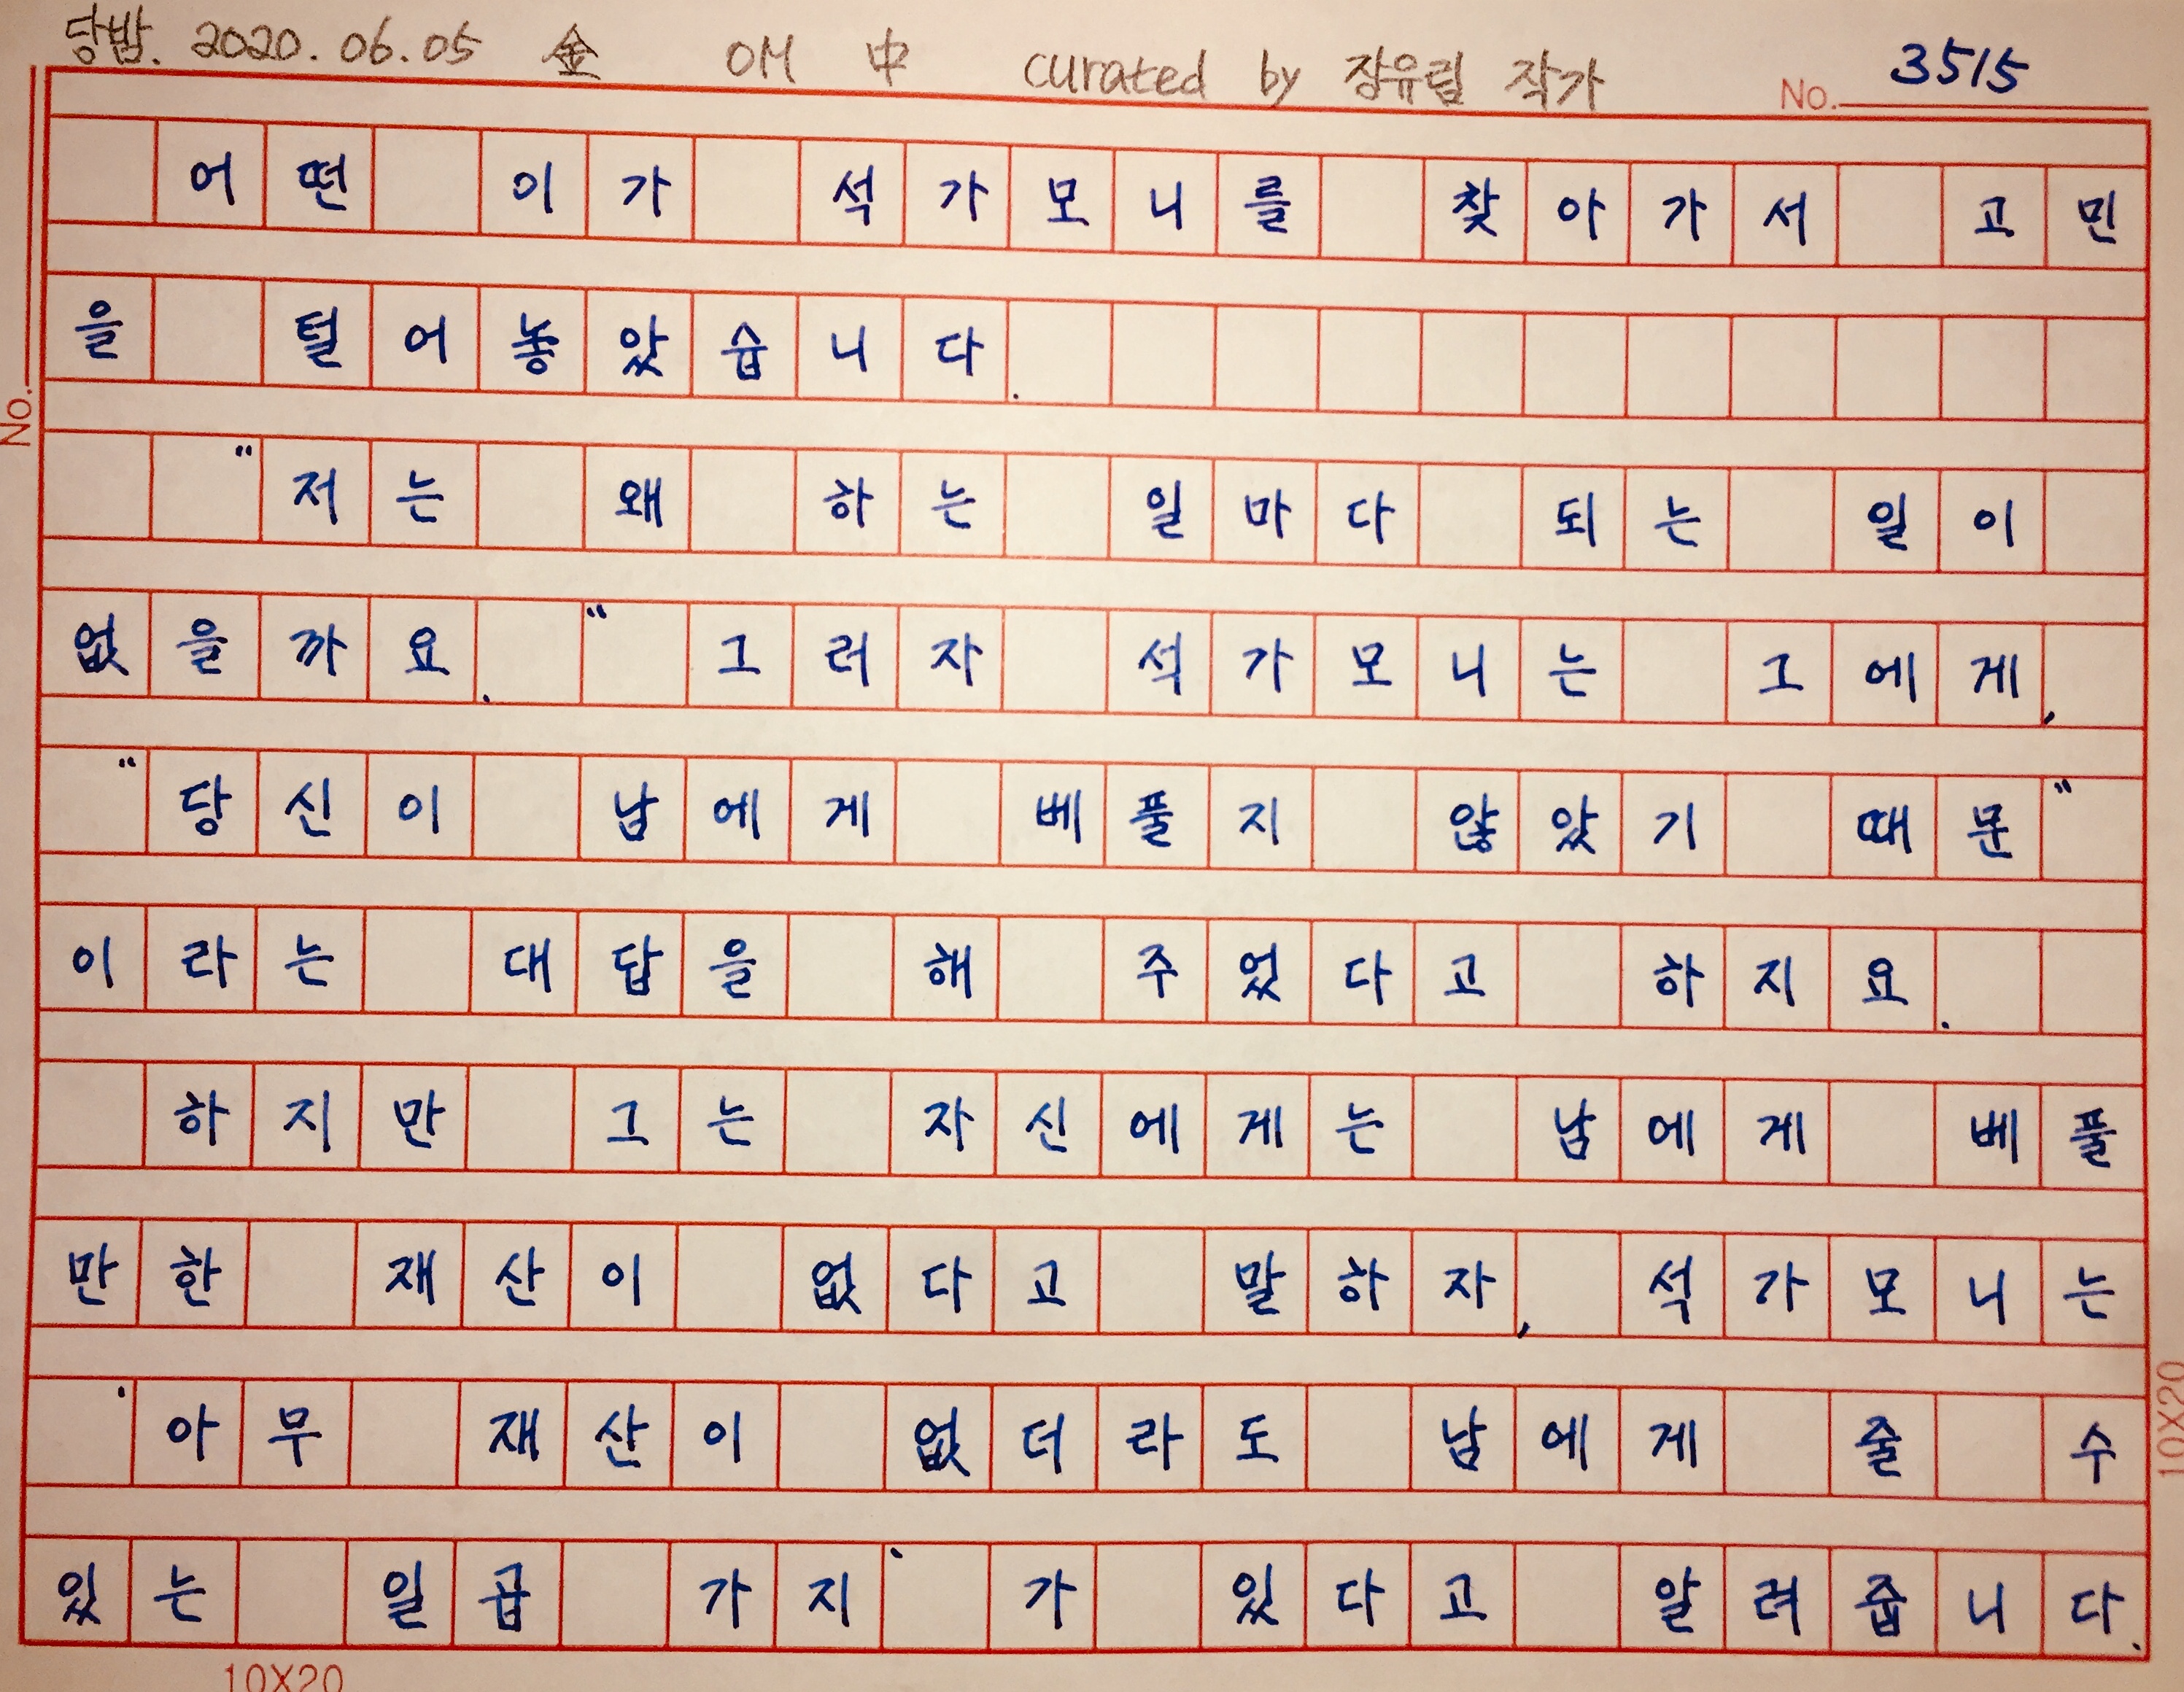 당밥. 2020. 06. 05 金 OM 中 curated by 장유림 작가 No. 3515
어떤 이가 석가모니를 찾아가서 고민
을 털어놓았습니다.
"저는 왜 하는 일마다 되는 일이
없을까요." 그러자 석가모니는 그에게,
"당신이 남에게 베풀지 않았기 때문"
이라는 대답을 해 주었다고 하지요.
하지만 그는 자신에게는 남에게 베풀
만한 재산이 없다고 말하자, 석가모니는
'아무 재산이 없더라도 남에게 줄 수
있는 일곱 가지'가 있다고 알려줍니다.
No.
10X20
10X20